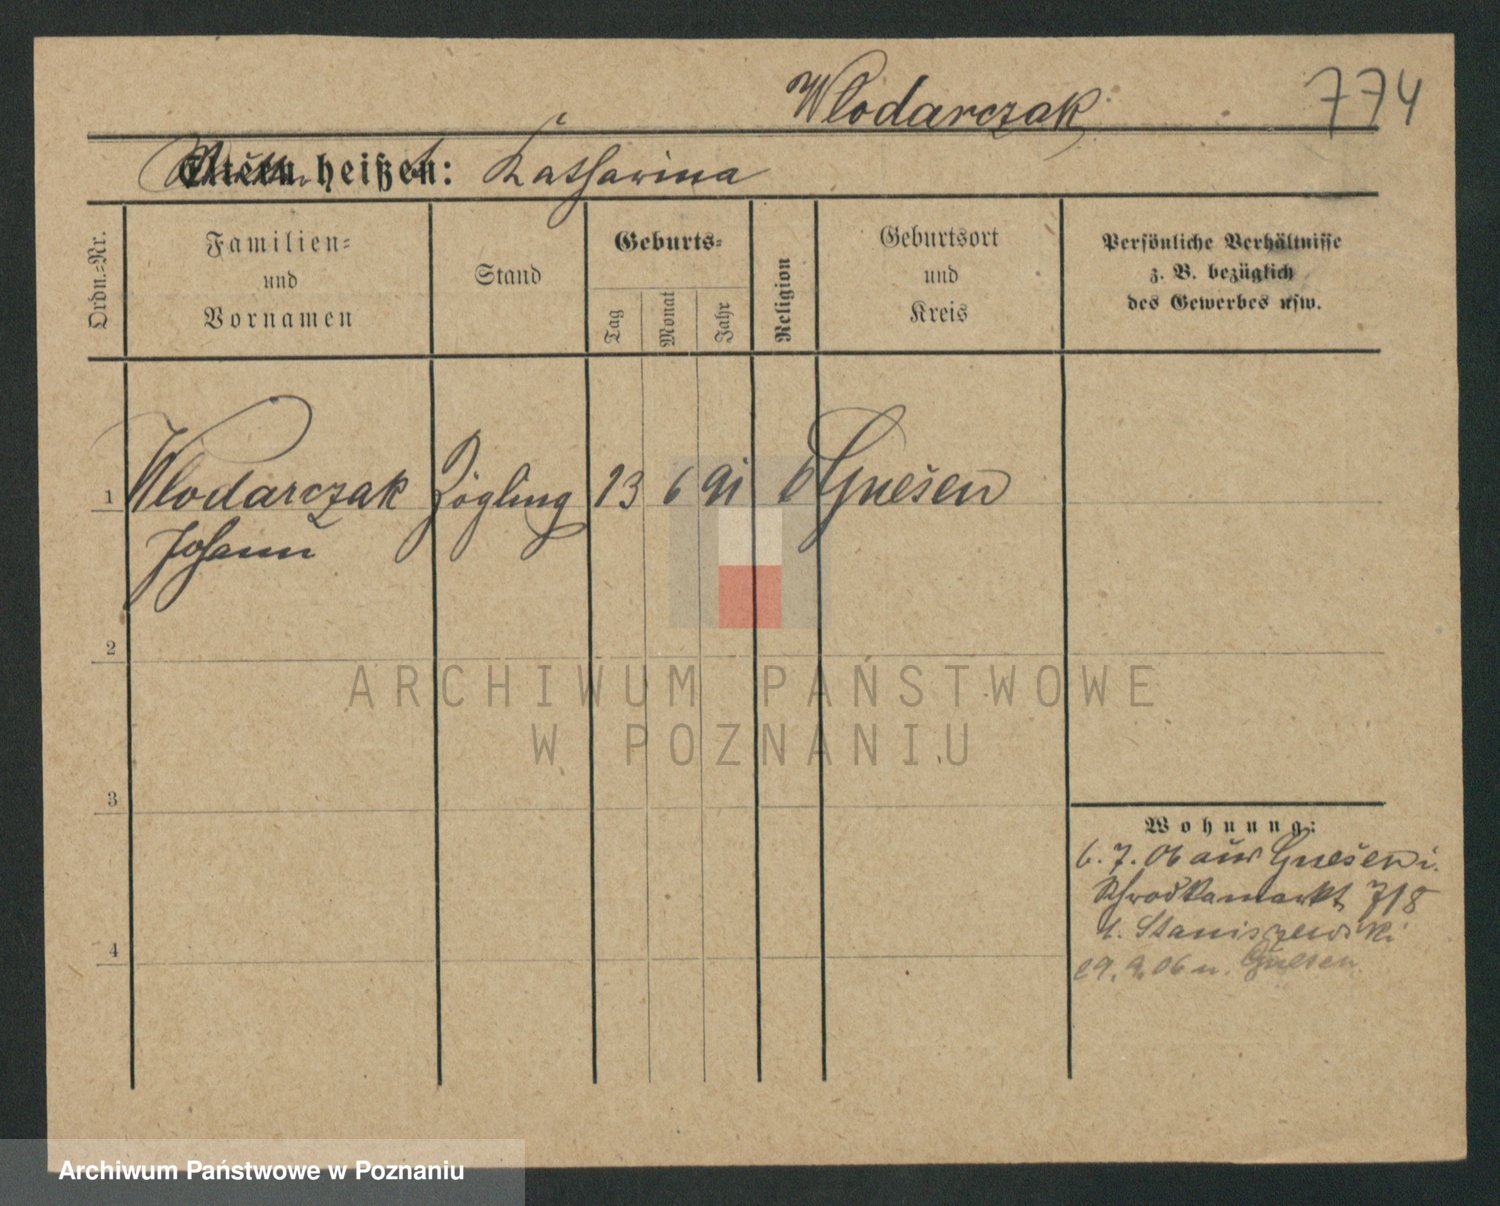 Wlodarczak 774
Eltern heißen: Katharina
Ordn.-Nr.
Familien-
und
Vornamen
Stand
Geburts-
Tag
Monat
Jahr
Religion
Geburtsort
und
Kreis
Persönliche Verhältnisse
z. B. bezüglich
des Gewerbes usw.
1 Wlodarczak Zögling 23 6 91 Gnesen
Johann
2
3
4
Wohnung:
6. 7. 06 aus Gnesen i.
Schrodkamarkt 7/8
b. Staniszewski
29. 9. 06 n. Gnesen
ARCHIWUM PAŃSTWOWE
W POZNANIU
Archiwum Państwowe w Poznaniu